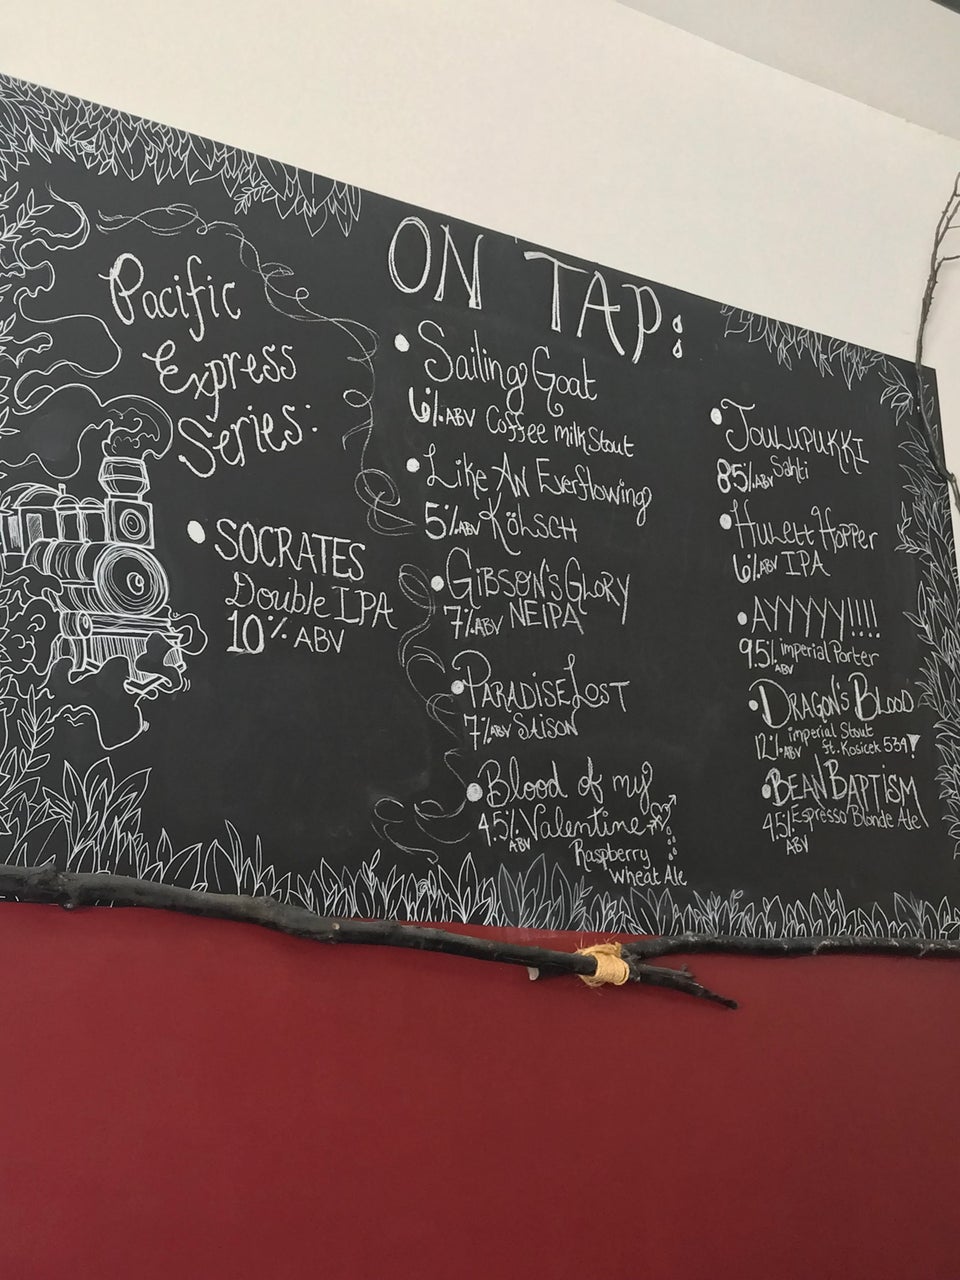 Pacific
Express
Series:
SOCRATES
Double IPA
10% ABV
ON TAP:
Sailing Goat
6% ABV Coffee milk Stout
Like An Everflowing
5% ABV KÖLSCH
GIBSON'S GLORY
7% ABV NEIPA
PARADISE LOST
7% ABV SAISON
Blood of my
4.5% ABV Valentine
Raspberry
Wheat Ale
JOULUPUKKI
8.5% ABV Sahti
Hulett Hopper
6% ABV IPA
AYYYYY!!!!
9.5% ABV imperial Porter
DRAGON'S BLOOD
imperial Stout
12% ABV ft. Kosicek 534!
BEAN BAPTISM
4.5% ABV Espresso Blonde Ale